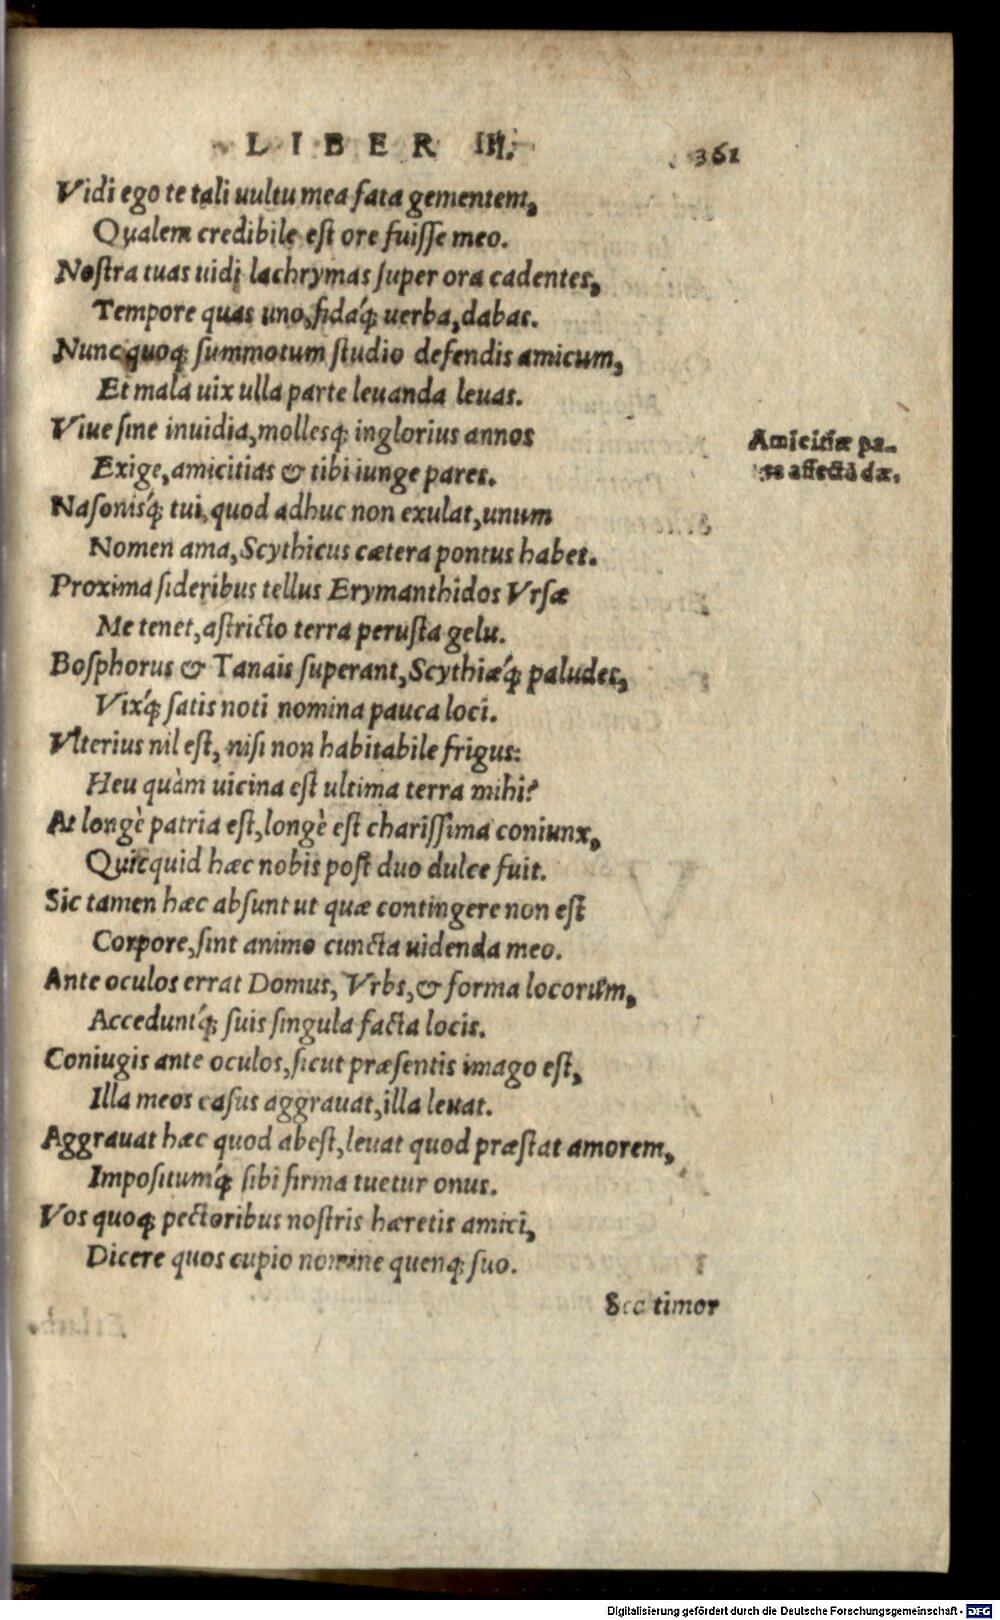 LIBER III.
361
Vidi ego te tali uultu mea fata gementem,
Qualem credibile est ore fuisse meo.
Nostra tuas uidi lachrymas super ora cadentes,
Tempore quas uno, fidáq́; uerba, dabas.
Nunc quoq; summotum studio defendis amicum,
Et mala uix ulla parte leuanda leuas.
Viue sine inuidia, mollesq; inglorius annos
Exige, amicitias & tibi iunge pares.
Amicitiæ pa-
res affectādæ.
Nasonisq́; tui, quod adhuc non exulat, unum
Nomen ama, Scythicus cætera pontus habet.
Proxima sideribus tellus Erymanthidos Vrsæ
Me tenet, astricto terra perusta gelu.
Bosphorus & Tanais superant, Scythiæq́; paludes,
Vixq́; satis noti nomina pauca loci.
Vlterius nil est, nisi non habitabile frigus:
Heu quàm uicina est ultima terra mihi?
At longè patria est, longè est charissima coniunx,
Quicquid hæc nobis post duo dulce fuit.
Sic tamen hæc absunt ut quæ contingere non est
Corpore, sint animo cuncta uidenda meo.
Ante oculos errat Domus, Vrbs, & forma locorum,
Acceduntq́; suis singula facta locis.
Coniugis ante oculos, sicut præsentis imago est,
Illa meos casus aggrauat, illa leuat.
Aggrauat hæc quod abest, leuat quod præstat amorem,
Impositumq́; sibi firma tuetur onus.
Vos quoq; pectoribus nostris hæretis amici,
Dicere quos cupio nomine quenq; suo.
Sec timor
Digitalisierung gefördert durch die Deutsche Forschungsgemeinschaft - DFG